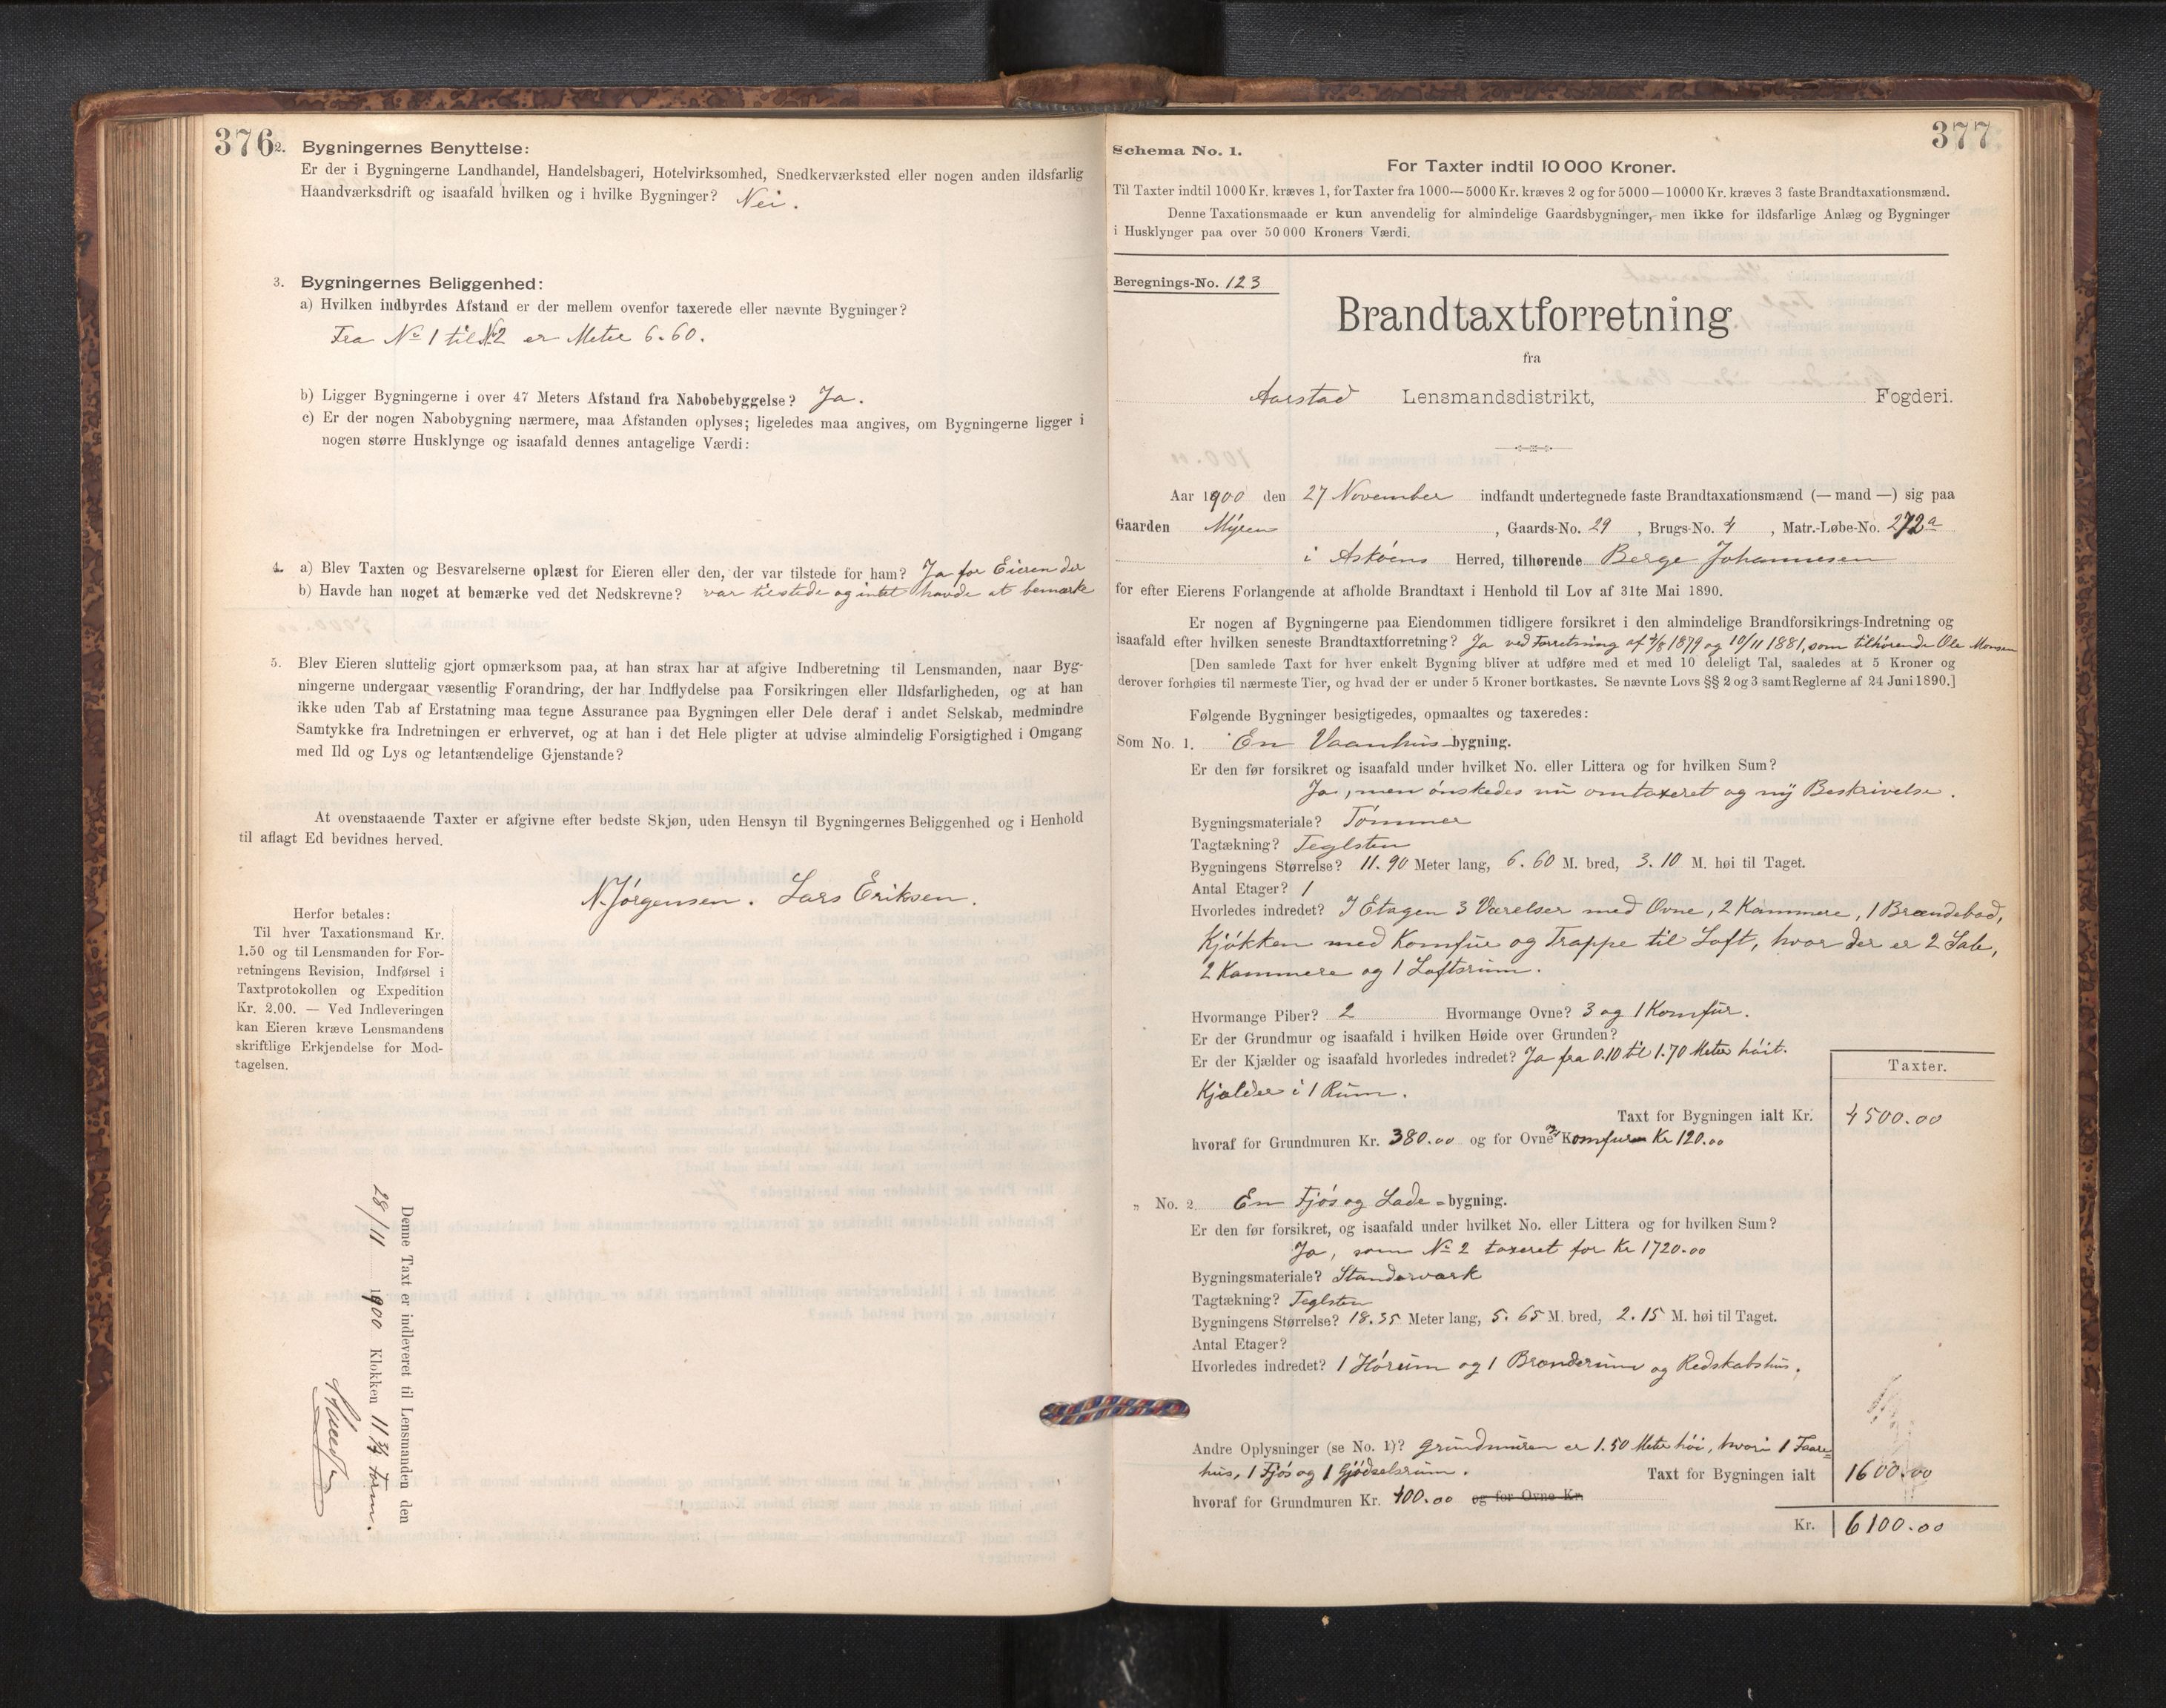 376
2. Bygningernes Benyttelse:
Er der i Bygningerne Landhandel, Handelsbageri, Hotelvirksomhed, Snedkerværksted eller nogen anden ildsfarlig
Haandværksdrift og isaafald hvilken og i hvilke Bygninger? Nei.
3. Bygningernes Beliggenhed:
a) Hvilken indbyrdes Afstand er der mellem ovenfor taxerede eller nævnte Bygninger?
Fra No 1 til No 2 er Meter 6.60.
b) Ligger Bygningerne i over 47 Meters Afstand fra Nabobebyggelse? Ja.
c) Er der nogen Nabobygning nærmere, maa Afstanden oplyses; ligeledes maa angives, om Bygningerne ligger i
nogen større Husklynge og isaafald dennes antagelige Værdi:
4. a) Blev Taxten og Besvarelserne oplæst for Eieren eller den, der var tilstede for ham? Ja for Eieren der
b) Havde han noget at bemærke ved det Nedskrevne? var tilstede og intet havde at bemærke
5. Blev Eieren sluttelig gjort opmærksom paa, at han strax har at afgive Indberetning til Lensmanden, naar Byg-
ningerne undergaar væsentlig Forandring, der har Indflydelse paa Forsikringen eller Ildsfarligheden, og at han
ikke uden Tab af Erstatning maa tegne Assurance paa Bygningen eller Dele deraf i andet Selskab, medmindre
Samtykke fra Indretningen er erhvervet, og at han i det Hele pligter at udvise almindelig Forsigtighed i Omgang
med Ild og Lys og letantændelige Gjenstande?
At ovenstaaende Taxter er afgivne efter bedste Skjøn, uden Hensyn til Bygningernes Beliggenhed og i Henhold
til aflagt Ed bevidnes herved.
N. Jørgensen. Lars Eriksen.
Herfor betales:
Til hver Taxationsmand Kr.
1.50 og til Lensmanden for For-
retningens Revision, Indførsel i
Taxtprotokollen og Expedition
Kr. 2.00. — Ved Indleveringen
kan Eieren kræve Lensmandens
skriftlige Erkjendelse for Mod-
tagelsen.
Denne Taxt er indleveret til Lensmanden den
28/11 1900 Klokken 11 1/2 Form.
377
Schema No. 1.
For Taxter indtil 10 000 Kroner.
Til Taxter indtil 1000 Kr. kræves 1, for Taxter fra 1000—5000 Kr. kræves 2 og for 5000—10000 Kr. kræves 3 faste Brandtaxationsmænd.
Denne Taxationsmaade er kun anvendelig for almindelige Gaardsbygninger, men ikke for ildsfarlige Anlæg og Bygninger
i Husklynger paa over 50 000 Kroners Værdi.
Beregnings-No. 123
Brandtaxtforretning
fra
Aarstad Lensmandsdistrikt, Fogderi.
Aar 1900 den 27 November indfandt undertegnede faste Brandtaxationsmænd (— mand —) sig paa
Gaarden Myren, Gaards-No. 29, Brugs-No. 4, Matr.-Løbe-No. 272a
i Askøens Herred, tilhørende Berge Johannesen
for efter Eierens Forlangende at afholde Brandtaxt i Henhold til Lov af 31te Mai 1890.
Er nogen af Bygningerne paa Eiendommen tidligere forsikret i den almindelige Brandforsikrings-Indretning og
isaafald efter hvilken seneste Brandtaxtforretning? Ja ved Forretning af 4/8 1879 og 10/11 1881, som tilhørende Ole Monsen
[Den samlede Taxt for hver enkelt Bygning bliver at udføre med et med 10 deleligt Tal, saaledes at 5 Kroner og
derover forhøies til nærmeste Tier, og hvad der er under 5 Kroner bortkastes. Se nævnte Lovs §§ 2 og 3 samt Reglerne af 24 Juni 1890.]
Følgende Bygninger besigtigedes, opmaaltes og taxeredes:
Som No. 1. En Vaanhus-bygning.
Er den før forsikret og isaafald under hvilket No. eller Littera og for hvilken Sum?
Ja, men ønskedes nu omtaxeret og ny Beskrivelse.
Bygningsmateriale? Tømmer
Tagtækning? Teglsten
Bygningens Størrelse? 11.90 Meter lang, 6.60 M. bred, 3.10 M. høi til Taget.
Antal Etager? 1
Hvorledes indredet? I Etagen 3 Værelser med Ovne, 2 Kammere, 1 Brændebod,
Kjøkken med Komfur og Trappe til Loft, hvor der er 2 Sale,
2 Kammere og 1 Loftsrum.
Hvormange Piber? 2 Hvormange Ovne? 3 og 1 Komfur.
Er der Grundmur og isaafald i hvilken Høide over Grunden?
Er der Kjælder og isaafald hvorledes indredet? Ja fra 0.10 til 1.70 Meter høit.
Kjælder i 1 Rum.
Taxter.
Taxt for Bygningen ialt Kr. 4500.00
hvoraf for Grundmuren Kr. 380.00 og for Ovne og Komfuren Kr 120.00
" No. 2. En Fjøs og Lade-bygning.
Er den før forsikret, og isaafald under hvilket No. eller Littera og for hvilken Sum?
Ja, som No 2 taxeret for Kr 1720.00
Bygningsmateriale? Standerværk
Tagtækning? Teglsten
Bygningens Størrelse? 18.35 Meter lang, 5.65 M. bred, 2.15 M. høi til Taget.
Antal Etager?
Hvorledes indredet? 1 Hørum og 1 Brænderum og Redskabshus.
Andre Oplysninger (se No. 1)? Grundmuren er 1.50 Meter høi, hvori 1 Faare=
hus, 1 Fjøs og 1 Gjødselsrum. Taxt for Bygningen ialt 1600.00
hvoraf for Grundmuren Kr. 400.00 og for Ovne Kr.
Kr. 6100.00